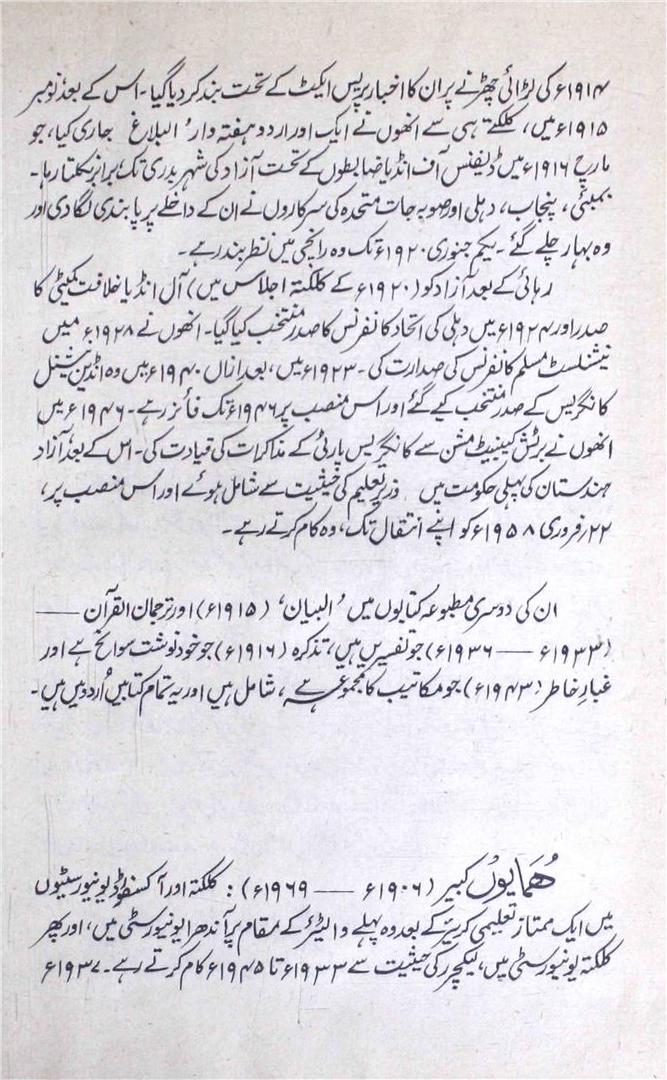 ۱۹۱۴ء کی لڑائی چھڑنے پر ان کا اخبار پریس ایکٹ کے تحت بند کر دیا گیا۔ اس کے بعد نومبر
۱۹۱۵ء میں، کلکتے ہی سے انھوں نے ایک اور اردو ہفتہ وار 'البلاغ' جاری کیا، جو
مارچ ۱۹۱۶ء میں ڈیفنس آف انڈیا ضابطوں کے تحت آزاد کی شہر بدری تک، برابر نکلتا رہا۔
بمبئی، پنجاب، دہلی اور صوبہ جات متحدہ کی سرکاروں نے ان کے داخلے پر پابندی لگا دی اور
وہ بہار چلے گئے۔ یکم جنوری ۱۹۲۰ء تک وہ رانچی میں نظر بند رہے۔
رہائی کے بعد آزاد کو (۱۹۲۰ء کے کلکتہ اجلاس میں) آل انڈیا خلافت کمیٹی کا
صدر اور ۱۹۲۴ء میں دہلی کی اتحاد کانفرنس کا صدر منتخب کیا گیا۔ انھوں نے ۱۹۲۸ء میں
نیشنلسٹ مسلم کانفرنس کی صدارت کی۔ ۱۹۲۳ء میں، بعد ازاں ۱۹۴۰ء میں وہ انڈین نیشنل
کانگریس کے صدر منتخب کیے گئے اور اس منصب پر ۱۹۴۶ء تک فائز رہے۔ ۱۹۴۶ء میں
انھوں نے برٹش کیبینٹ مشن سے کانگریس پارٹی کے مذاکرات کی قیادت کی۔ اس کے بعد آزاد
ہندستان کی پہلی حکومت میں وزیر تعلیم کی حیثیت سے شامل ہوئے اور اس منصب پر،
۲۲ر فروری ۱۹۵۸ء کو اپنے انتقال تک، وہ کام کرتے رہے۔
ان کی دوسری مطبوعہ کتابوں میں 'البیان' (۱۹۱۵ء) اور ترجمان القرآن ——
(۱۹۳۳ء —— ۱۹۳۶ء) جو تفسیریں ہیں، تذکرہ (۱۹۱۶ء) جو خود نوشت سوانح ہے اور
غبارِ خاطر (۱۹۴۳ء) جو مکاتیب کا مجموعہ ہے، شامل ہیں اور یہ تمام کتابیں اُردو میں ہیں۔
ہُمایوں کبیر (۱۹۰۶ء —— ۱۹۶۹ء) : کلکتہ اور آکسفورڈ یونیورسٹیوں
میں ایک ممتاز تعلیمی کریئر کے بعد وہ پہلے والٹیر کے مقام پر آندھرا یونیورسٹی میں، اور پھر
کلکتہ یونیورسٹی میں، لیکچرر کی حیثیت سے ۱۹۳۳ء تا ۱۹۴۵ء کام کرتے رہے۔ ۱۹۳۷ء